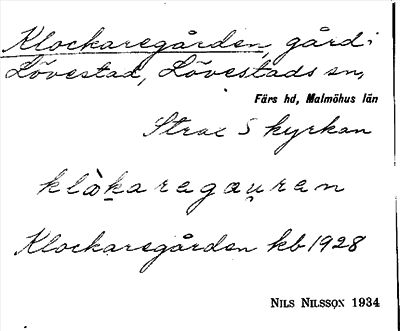 Klockaregården, gård i
Lövestad, Lövestads sn,
Färs hd, Malmöhus län
Strax S kyrkan
klòk̠aregau̯ren
Klockaregården kb 1928
NILS NILSSON 1934